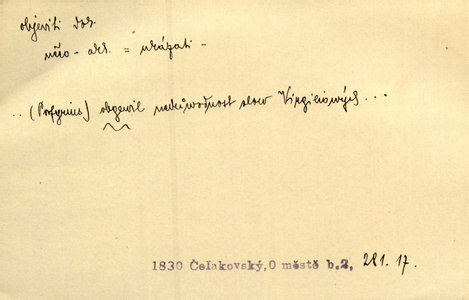 objeviti dok.
něco - ak. = ukázati -
.. (Porfyrius) obgewil nedůwodnost slow Virgiliowých ...
1830 Čelakovský, O městě b. 2, 281. 17.